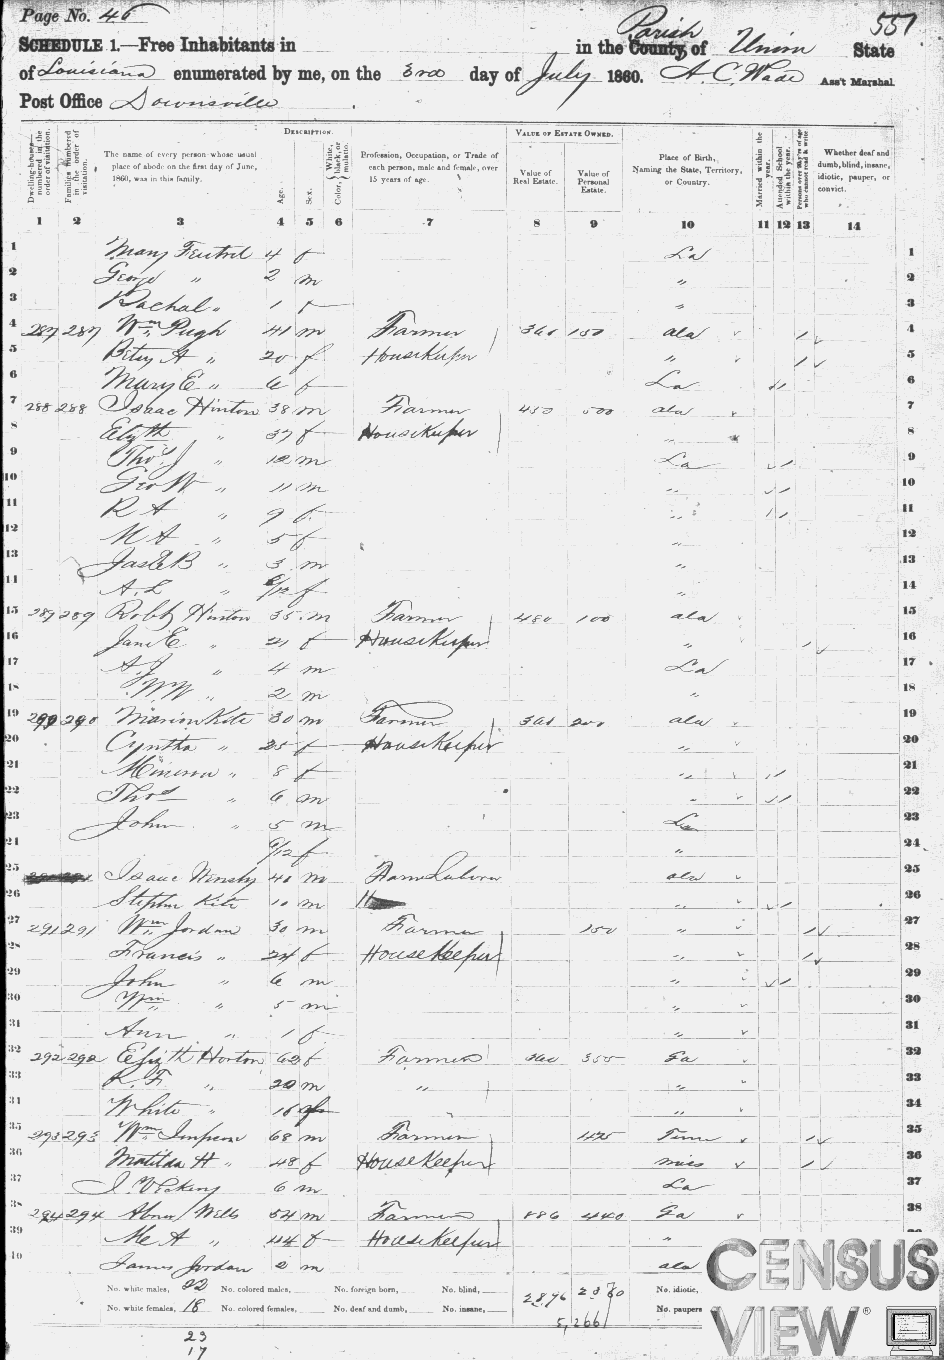 Page No. 46
557
SCHEDULE 1.—Free Inhabitants in in the County, of Parish Union State
of Louisiana enumerated by me, on the 3rd day of July 1860. A. C. Wade Ass't Marshal.
Post Office Downsville
DESCRIPTION. VALUE OF ESTATE OWNED.
Dwelling-houses—numbered in the order of visitation. Families numbered in the order of visitation. The name of every person whose usual place of abode on the first day of June, 1860, was in this family. Age. Sex. Color, White, black, or mulatto. Profession, Occupation, or Trade of each person, male and female, over 15 years of age. Value of Real Estate. Value of Personal Estate. Place of Birth, Naming the State, Territory, or Country. Married within the year. Attended School within the year. Persons over 20 y'rs of age who cannot read & write. Whether deaf and dumb, blind, insane, idiotic, pauper, or convict.
1 2 3 4 5 6 7 8 9 10 11 12 13 14
1 Mary 4 f La 1
2 George " 2 m " 2
3 Rachal " 1 f " 3
4 287 287 Wm Pugh 41 m Farmer 360 150 ala / 4
5 Betsy A " 20 f HouseKeeper " / 5
6 Mary E " 6 f La 6
7 288 288 Isaac Hinton 38 m Farmer 450 500 ala 7
8 Elizth " 37 f HouseKeeper " 8
9 Thos J " 12 m La / 9
10 Geo W " 11 m " / 10
11 R A " 9 f " / 11
12 M A " 5 f " 12
13 B " 3 m " 13
14 A. L " /12 f " 14
15 289 289 Robt Hinton 35 m Farmer 480 100 ala 15
16 Jane E " 21 f HouseKeeper " / 16
17 A. J " 4 m La 17
18 W " 2 m " 18
19 290 290 Marion Kite 30 m Farmer 360 200 ala 19
20 Cyntha " 25 f HouseKeeper " 20
21 " 8 f " / 21
22 Thos " 6 m " / 22
23 John " 5 m La 23
24 /12 f " 24
25 Isaac 40 m Farm ala 25
26 Stephen Kite 10 m " / 26
27 291 291 Wm Jordan 30 m Farmer 150 " / 27
28 Francis " 24 f HouseKeeper " / 28
29 John " 6 m " / 29
30 Wm " 5 m " 30
31 Ann " 1 f " 31
32 292 292 Elizth Horton 62 f Farmer 360 355 Ga 32
33 " 20 m " " 33
34 White " 16 " 34
35 293 293 Wm Simpson 68 m Farmer 425 Tenn / 35
36 Matilda H " 48 f HouseKeeper miss / 36
37 6 m La 37
38 294 294 Abner Wells 54 m Farmer 886 440 Ga 38
39 A " 44 f HouseKeeper " 39
40 James Jordan 2 m ala
No. white males, 22 No. colored males, No. foreign born, No. blind, 2876 2360 No. idiotic,
No. white females, 18 No. colored females, No. deaf and dumb, No. insane, 5,266 No. paupers
23
17
CENSUS
VIEW®